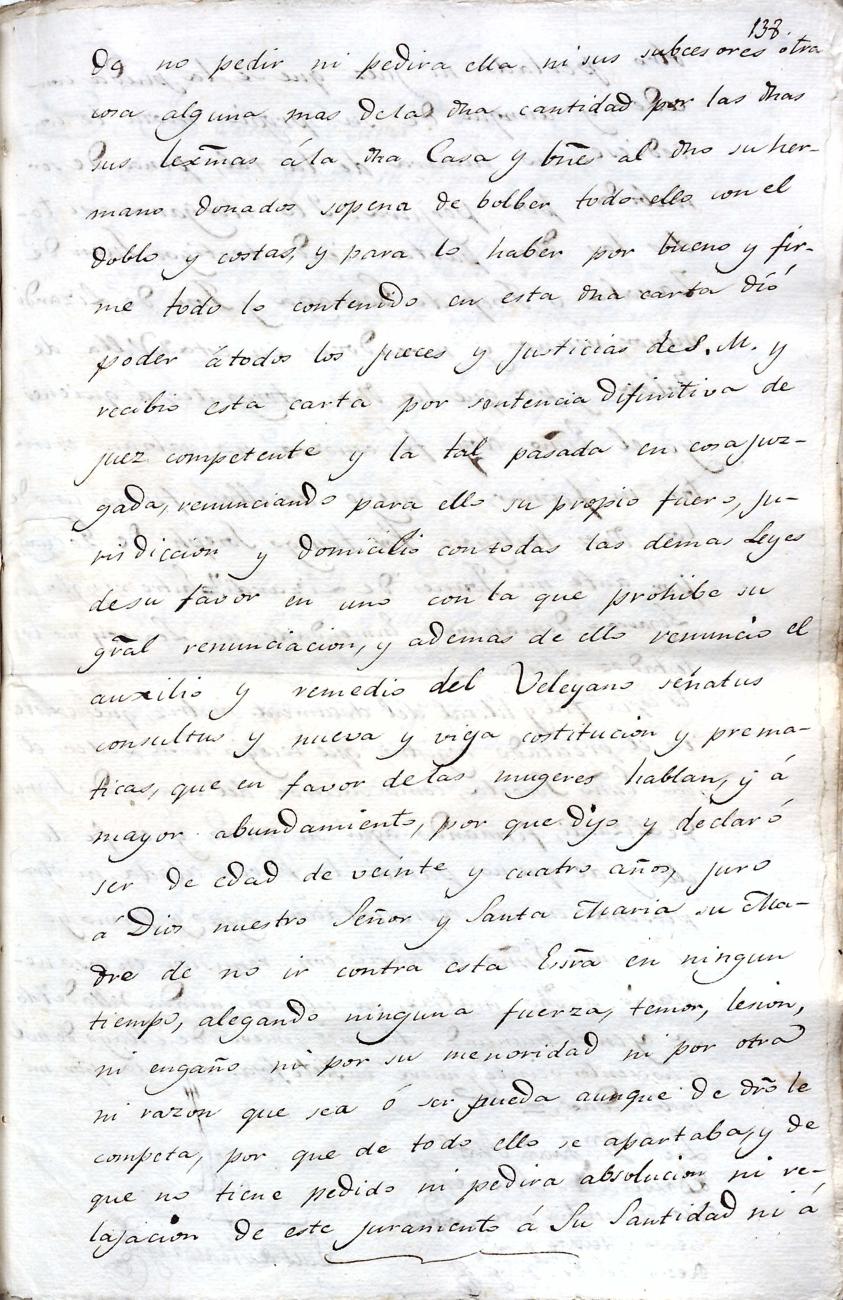 138.
do no pedir ni pedira ella ni sus subcesores otra
cosa alguna mas de la dha cantidad por las dhas
sus lexmas á la dha Casa y bñs al dho su her-
mano donados sopena de bolber todo ello con el
doblo y costas, y para lo haber por bueno y fir-
me todo lo contenido en esta dha carta dió
poder á todos los jueces y justicias de S. M. y
recibio esta carta por sentencia difinitiva de
juez competente y la tal pasada en cosa juz-
gada, renunciando para ello su propio fuero, ju-
risdiccion y domicilio con todas las demas Leyes
de su favor en uno con la que prohibe su
gral renunciacion, y ademas de ello renuncio el
auxilio y remedio del Veleyano senatus
consultus y nueva y viga costitucion y prema-
ticas, que en favor de las mugeres hablan, y á
mayor abundamiento, por que dijo y declaró
ser de edad de veinte y cuatro años, juro
á Dios nuestro Señor y Santa Maria su Ma-
dre de no ir contra esta Essra en ningun
tiempo, alegando ninguna fuerza, temor, lesion,
ni engaño ni por su menoridad ni por otra
ni razon que sea ó ser pueda aunque de dro le
competa, por que de todo ello se apartaba, y de
que no tiene pedido ni pedira absolucion ni re-
lajacion de este juramento á Su Santidad ni á